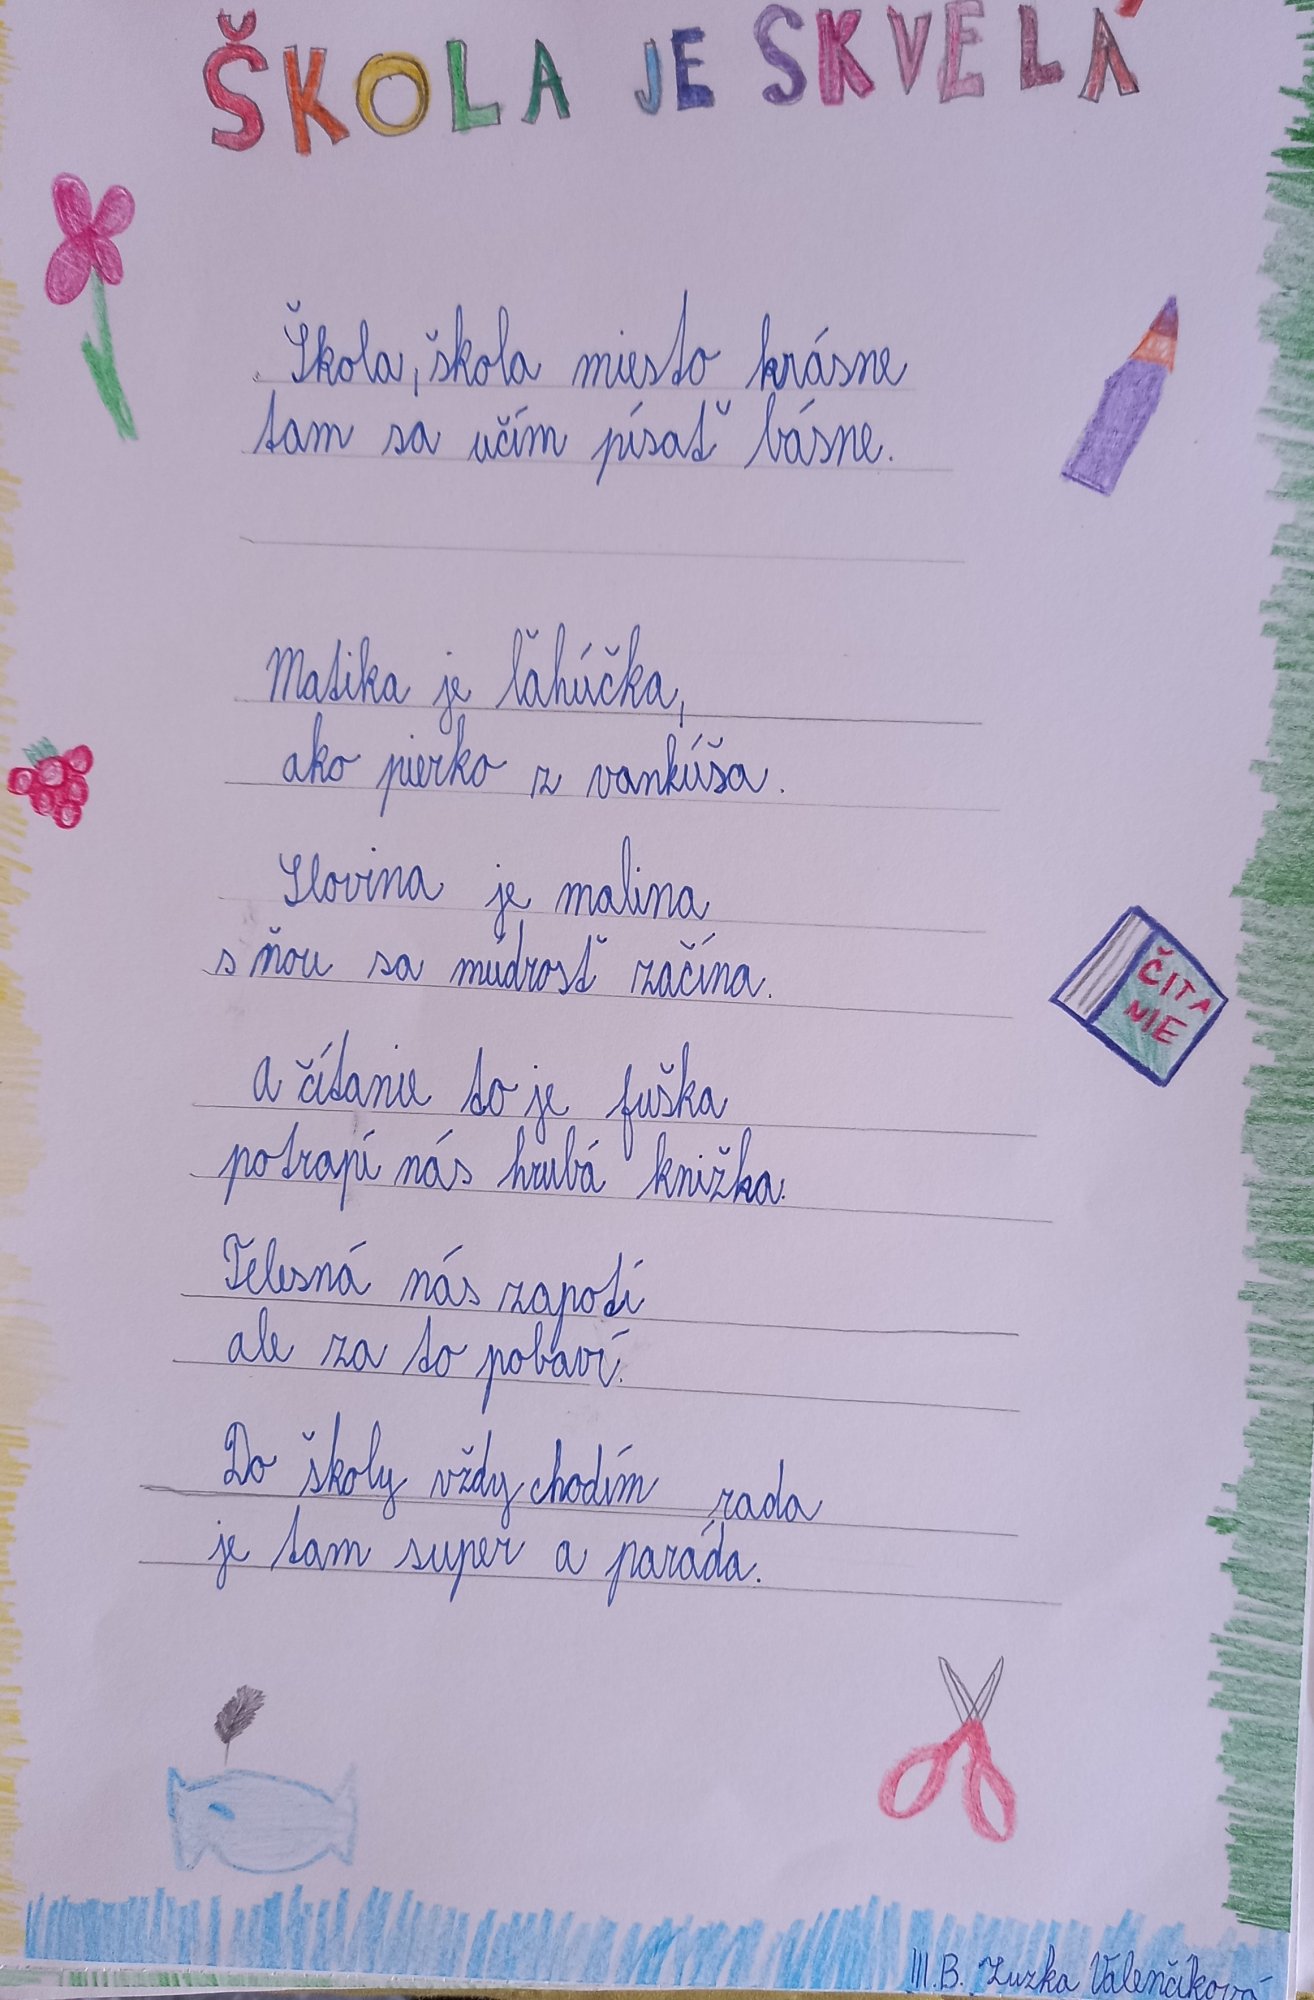 ŠKOLA JE SKVELÁ
Škola, škola miesto krásne
tam sa učím písať básne.
Matika je ľahúčka,
ako pierko z vankúša.
Slovina je malina
s ňou sa múdrosť začína.
A čítanie to je fuška
potrapí nás hrubá knižka.
ČÍTA
NIE
Telesná nás zapotí
ale za to pobaví.
Do školy vždy chodím rada
je tam super a paráda.
III.B. Zuzka Valenčíková